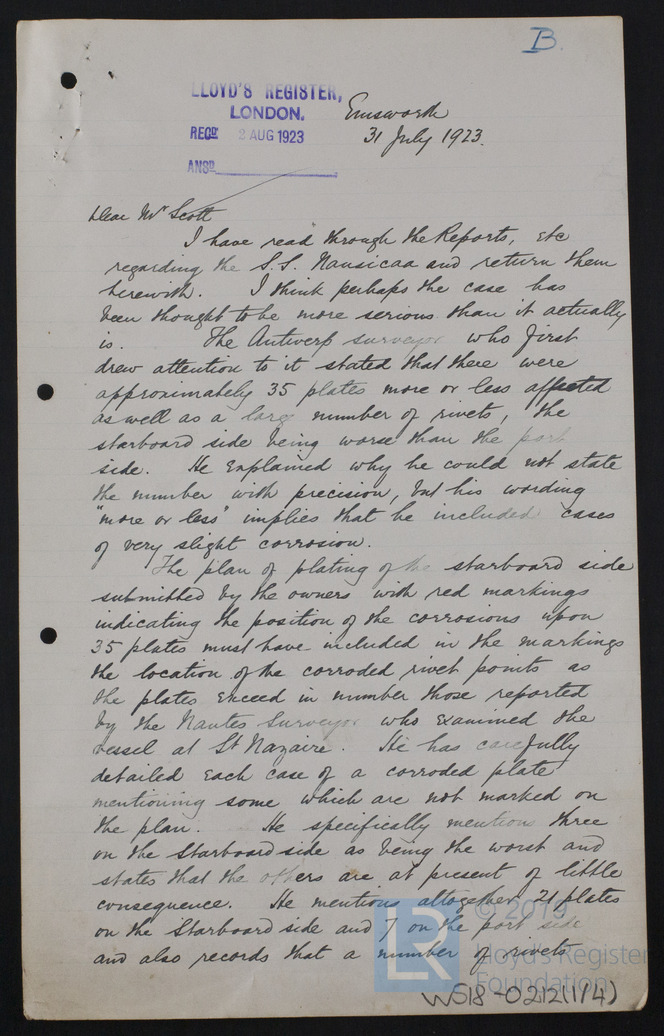 B.
LLOYD'S REGISTER,
LONDON.
RECD 2 AUG 1923
ANSD
Emsworth
31 July 1923.
Dear Mr Scott
I have read through the Reports, etc
regarding the S.S. Nausicaa and return them
herewith. I think perhaps the case has
been thought to be more serious than it actually
is. The Antwerp surveyor who first
drew attention to it stated that there were
approximately 35 plates more or less affected
as well as a large number of rivets, the
starboard side being worse than the port
side. He explained why he could not state
the number with precision, but his wording
"more or less" implies that he included cases
of very slight corrosion.
The plan of plating of the starboard side
submitted by the owners with red markings
indicating the position of the corrosions upon
35 plates must have included in the markings
the location of the corroded rivet points as
the plates exceed in number those reported
by the Nantes Surveyor who examined the
vessel at St Nazaire. He has carefully
detailed each case of a corroded plate
mentioning some which are not marked on
the plan. He specifically mentions three
on the Starboard side as being the worst and
states that the others are at present of little
consequence. He mentions altogether 21 plates
on the Starboard side and 7 on the port side
and also records that a number of rivets
LR
© 2019
Lloyd's Register
Foundation
WS18-0212(1/4)